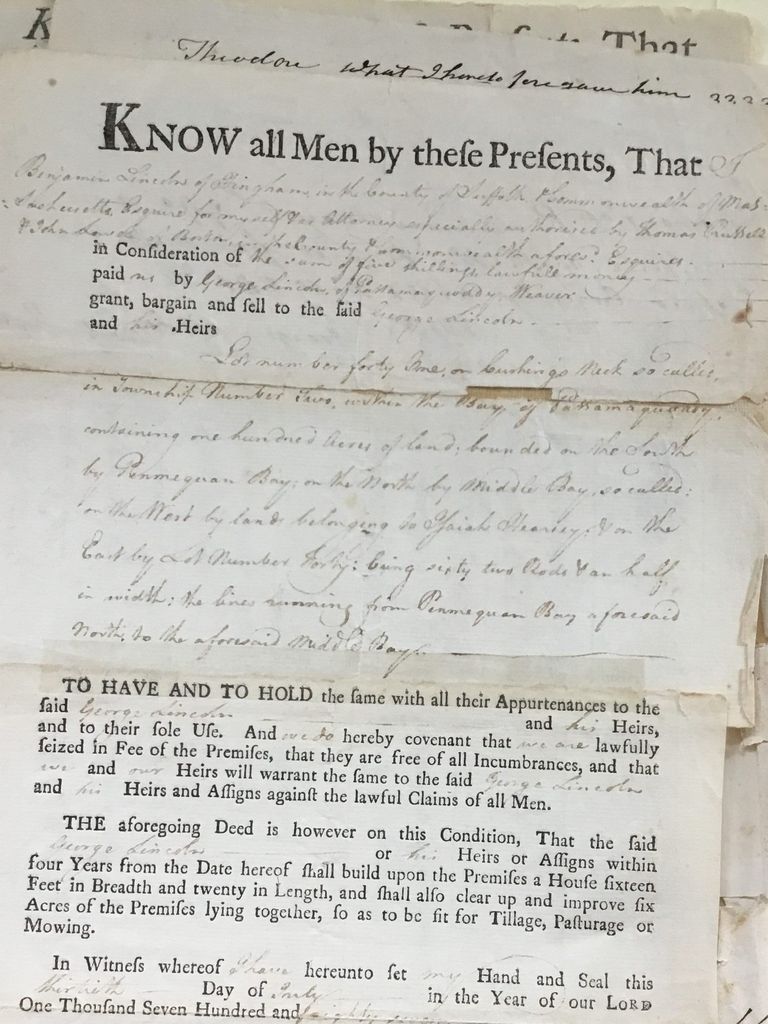 K
That
Theodore what I heretofore gave him 2222
KNOW all Men by theſe Preſents, That I
Benjamin Lincoln of Hingham, in the County of Suffolk & Commonwealth of Mas-
:sachusetts, Esquire for myself & as Attorney especially authorized by Thomas Russell
& John Lowell of Boston, in the County & Commonwealth afores.d Esquires
in Conſideration of the sum of five shillings, lawfull money
paid me by George Lincoln, of Pattamaquoddy, Weaver
grant, bargain and ſell to the ſaid George Lincoln
and his Heirs
Lot number forty One, on Cushing's Neck so called,
in Township Number Two, within the Bay of Pattamaquoddy,
containing one hundred Acres of land; bounded on the South
by Penmequan Bay; on the North by Middle Bay, so called;
on the West by lands belonging to Isaiah Hearsey; & on the
East by Lot Number Forty: being sixty two Rods & an half
in width; the lines running from Penmequan Bay aforesaid
North, to the aforesaid Middle Bay.
TO HAVE AND TO HOLD the ſame with all their Appurtenances to the
ſaid George Lincoln and his Heirs,
and to their ſole Uſe. And we do hereby covenant that we are lawfully
ſeized in Fee of the Premiſes, that they are free of all Incumbrances, and that
we and our Heirs will warrant the ſame to the ſaid George Lincoln
and his Heirs and Aſſigns againſt the lawful Claims of all Men.
THE aforegoing Deed is however on this Condition, That the ſaid
George Lincoln or his Heirs or Aſſigns within
four Years from the Date hereof ſhall build upon the Premiſes a Houſe ſixteen
Feet in Breadth and twenty in Length, and ſhall alſo clear up and improve ſix
Acres of the Premiſes lying together, ſo as to be fit for Tillage, Paſturage or
Mowing.
In Witneſs whereof I have hereunto ſet my Hand and Seal this
thirtieth Day of July in the Year of our LORD
One Thouſand Seven Hundred and eighty seven